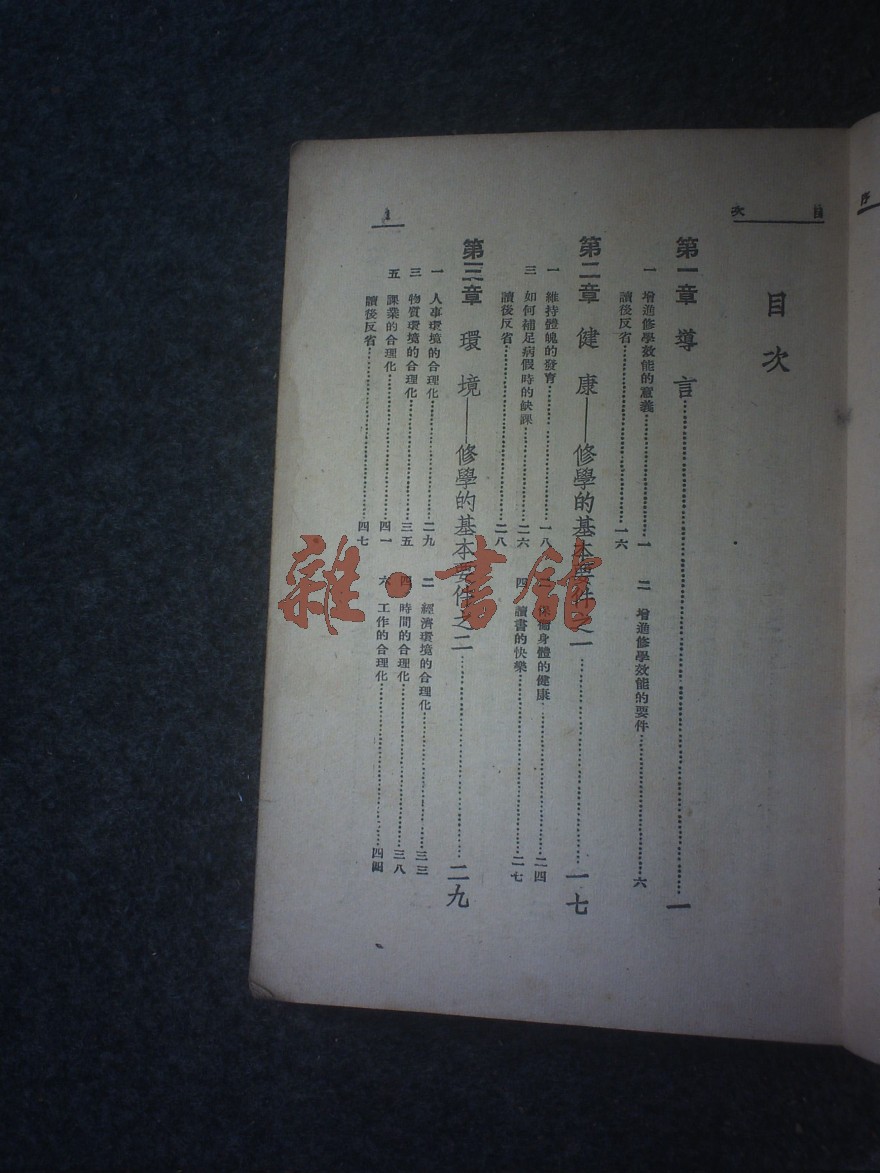 序
目次
目次
第一章 導言……一
一 增進修學效能的意義……一
二 增進修學效能的要件……六
讀後反省……一六
第二章 健康——修學的基本要件之一……一七
一 維持體魄的發育……一八
二 保衛身體的健康……二四
三 如何補足病假時的缺課……二六
四 讀書的快樂……二七
讀後反省……二八
第三章 環境——修學的基本要件之二……二九
一 人事環境的合理化……二九
二 經濟環境的合理化……三三
三 物質環境的合理化……三五
四 時間的合理化……三八
五 課業的合理化……四一
六 工作的合理化……四四
讀後反省……四七
1
雜·書館